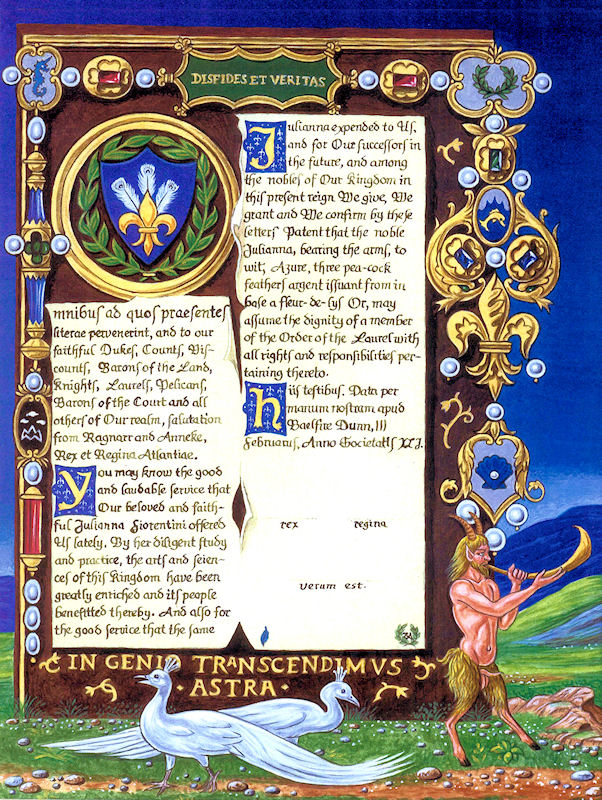 DISFIDES ET VERITAS
Omnibus ad quos praesentes
literae pervenerint, and to our
faithful Dukes, Counts, Vis-
counts, Barons of the Land,
Knights, Laurels, Pelicans,
Barons of the Court and all
others of Our realm, salutation
from Ragnarr and Anneke,
Rex et Regina Atlantiae.
You may know the good
and laudable service that
Our beloved and faith-
ful Julianna Fiorentini offered
Us lately. By her diligent study
and practice, the arts and scien-
ces of this Kingdom have been
greatly enriched and its people
benefitted thereby. And also for
the good service that the same
Julianna expended to Us,
and for Our successors in
the future, and among
the nobles of Our Kingdom in
this present reign We give, We
grant and We confirm by these
letters Patent that the noble
Julianna, bearing the arms, to
wit; Azure, three pea-cock
feathers argent issuant from in
base a fleur-de-lys Or, may
assume the dignity of a member
of the Order of the Laurel with
all rights and responsibilities per-
taining thereto.
hiis testibus. Data per
manum nostram apud
Baelfire Dunn, III
Februarus, Anno Societatis XLI.
rex regina
verum est.
IN GENIO TRANSCENDIMVS
· ASTRA ·